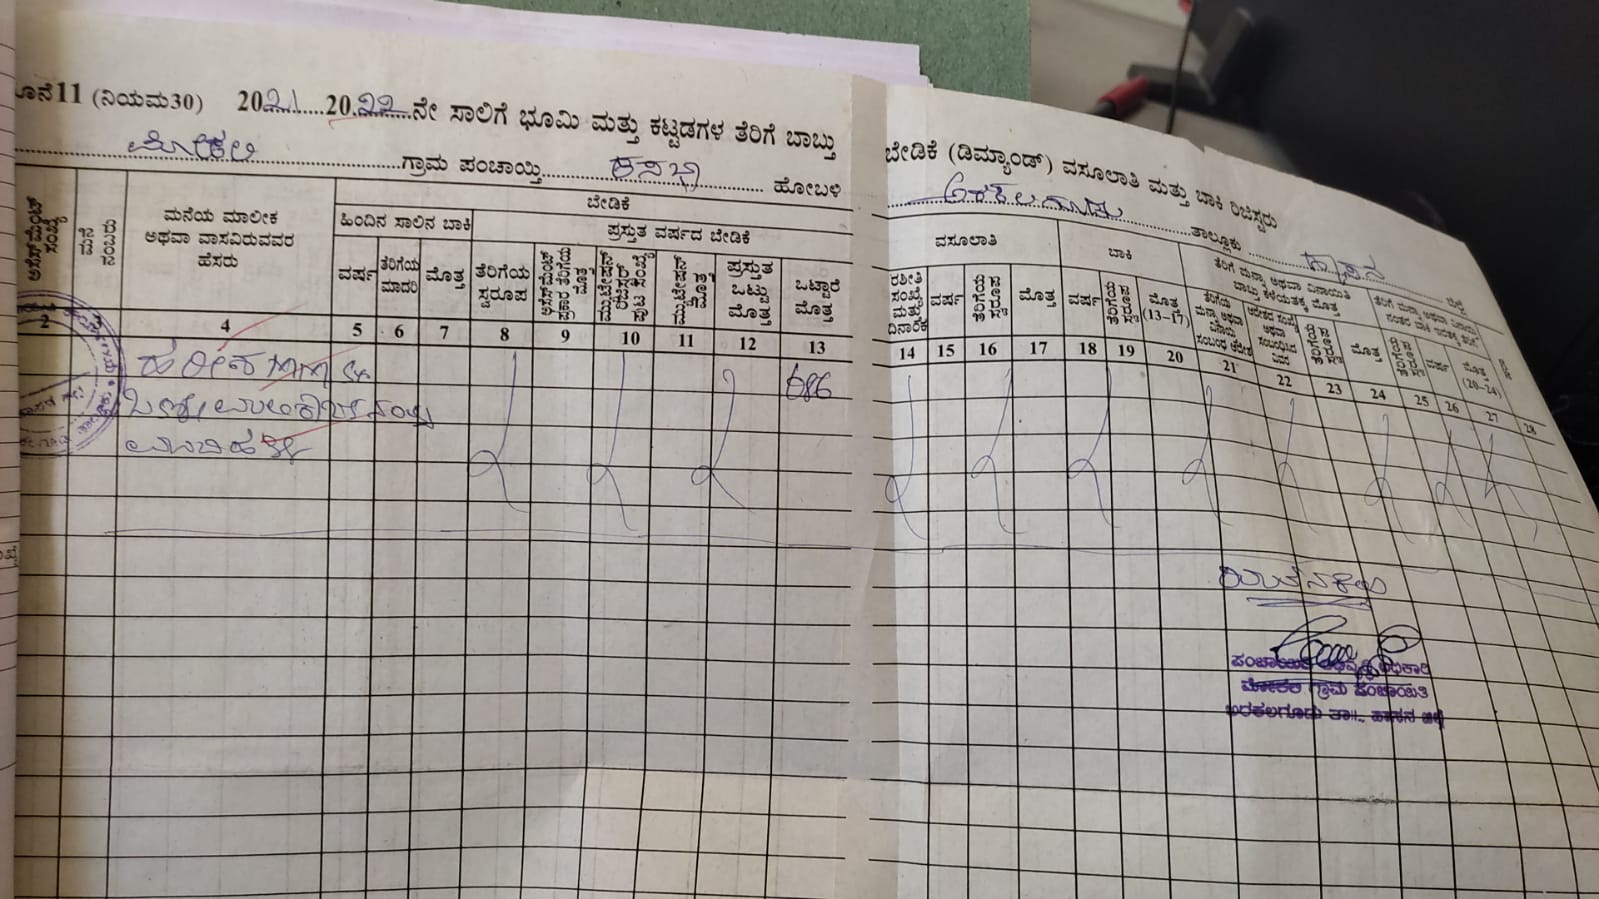 ನೆ11 (ನಿಯಮ30) 2021....20.22..ನೇ ಸಾಲಿಗೆ ಭೂಮಿ ಮತ್ತು ಕಟ್ಟಡಗಳ ತೆರಿಗೆ ಬಾಬ್ತು
ಬೇಡಿಕೆ (ಡಿಮ್ಯಾಂಡ್) ವಸೂಲಾತಿ ಮತ್ತು ಬಾಕಿ ರಿಜಿಸ್ಟರು
ಮೋಕಲಿ ಗ್ರಾಮ ಪಂಚಾಯ್ತಿ ಕಸಬಾ ಹೋಬಳಿ
ಅರಕಲಗೂಡು ತಾಲ್ಲೂಕು ಹಾಸನ ಜಿಲ್ಲೆ
ಅಸೆಸ್‌ಮೆಂಟ್ ಸಂಖ್ಯೆ
ಮನೆ ನಂಬರು
ಮನೆಯ ಮಾಲೀಕ
ಅಥವಾ ವಾಸವಿರುವವರ
ಹೆಸರು
ಬೇಡಿಕೆ
ಹಿಂದಿನ ಸಾಲಿನ ಬಾಕಿ
ಪ್ರಸ್ತುತ ವರ್ಷದ ಬೇಡಿಕೆ
ವರ್ಷ
ತೆರಿಗೆಯ ಮಾದರಿ
ಮೊತ್ತ
ತೆರಿಗೆಯ ಸ್ವರೂಪ
ಅಸೆಸ್‌ಮೆಂಟ್ ಪ್ರಕಾರ ತೆರಿಗೆಯ ಮೊತ್ತ
ಮ್ಯುಟೇಷನ್ ರಿಜಿಸ್ಟರ್ ಪುಟ ಸಂಖ್ಯೆ
ಮ್ಯುಟೇಷನ್ ಮೊತ್ತ
ಪ್ರಸ್ತುತ ಒಟ್ಟು ಮೊತ್ತ
ಒಟ್ಟಾರೆ ಮೊತ್ತ
ವಸೂಲಾತಿ
ರಶೀತಿ ಸಂಖ್ಯೆ ಮತ್ತು ದಿನಾಂಕ
ವರ್ಷ
ತೆರಿಗೆಯ ಸ್ವರೂಪ
ಮೊತ್ತ
ಬಾಕಿ
ವರ್ಷ
ತೆರಿಗೆಯ ಸ್ವರೂಪ
ಮೊತ್ತ (13-17)
ತೆರಿಗೆ ಮನ್ನಾ ಅಥವಾ ವಿನಾಯಿತಿ
ಬಾಬ್ತು ಕಳೆಯತಕ್ಕ ಮೊತ್ತ
ತೆರಿಗೆಯ ಸ್ವರೂಪ
ಮೊತ್ತ
ತೆರಿಗೆಯ ಸ್ವರೂಪ
ವರ್ಷ
ಮೊತ್ತ (20-24)
2 4 5 6 7 8 9 10 11 12 13 14 15 16 17 18 19 20 21 22 23 24 25 26 27 28
686
ಪಂಚಾಯಿತಿ ಅಭಿವೃದ್ಧಿ ಅಧಿಕಾರಿ
ಮೋಕಲಿ ಗ್ರಾಮ ಪಂಚಾಯಿತಿ
ಅರಕಲಗೂಡು ತಾ||, ಹಾಸನ ಜಿಲ್ಲೆ